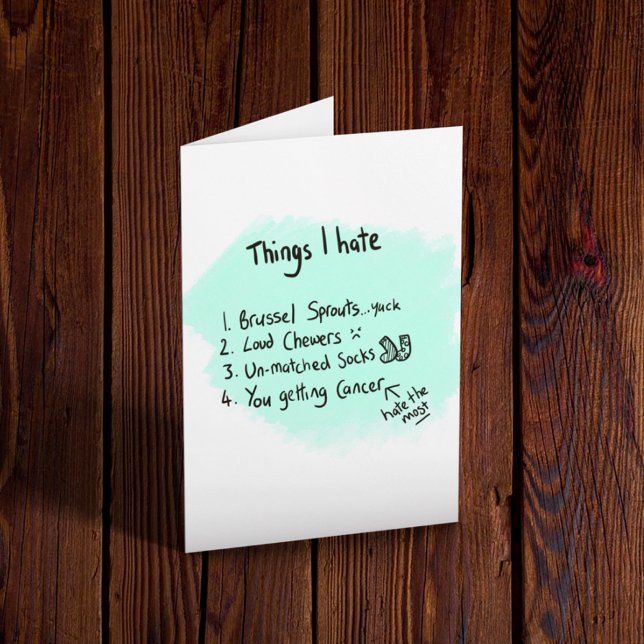 Things I hate
1. Brussel Sprouts...yuck
2. Loud Chewers
3. Un-matched Socks
4. You getting Cancer
hate the
most